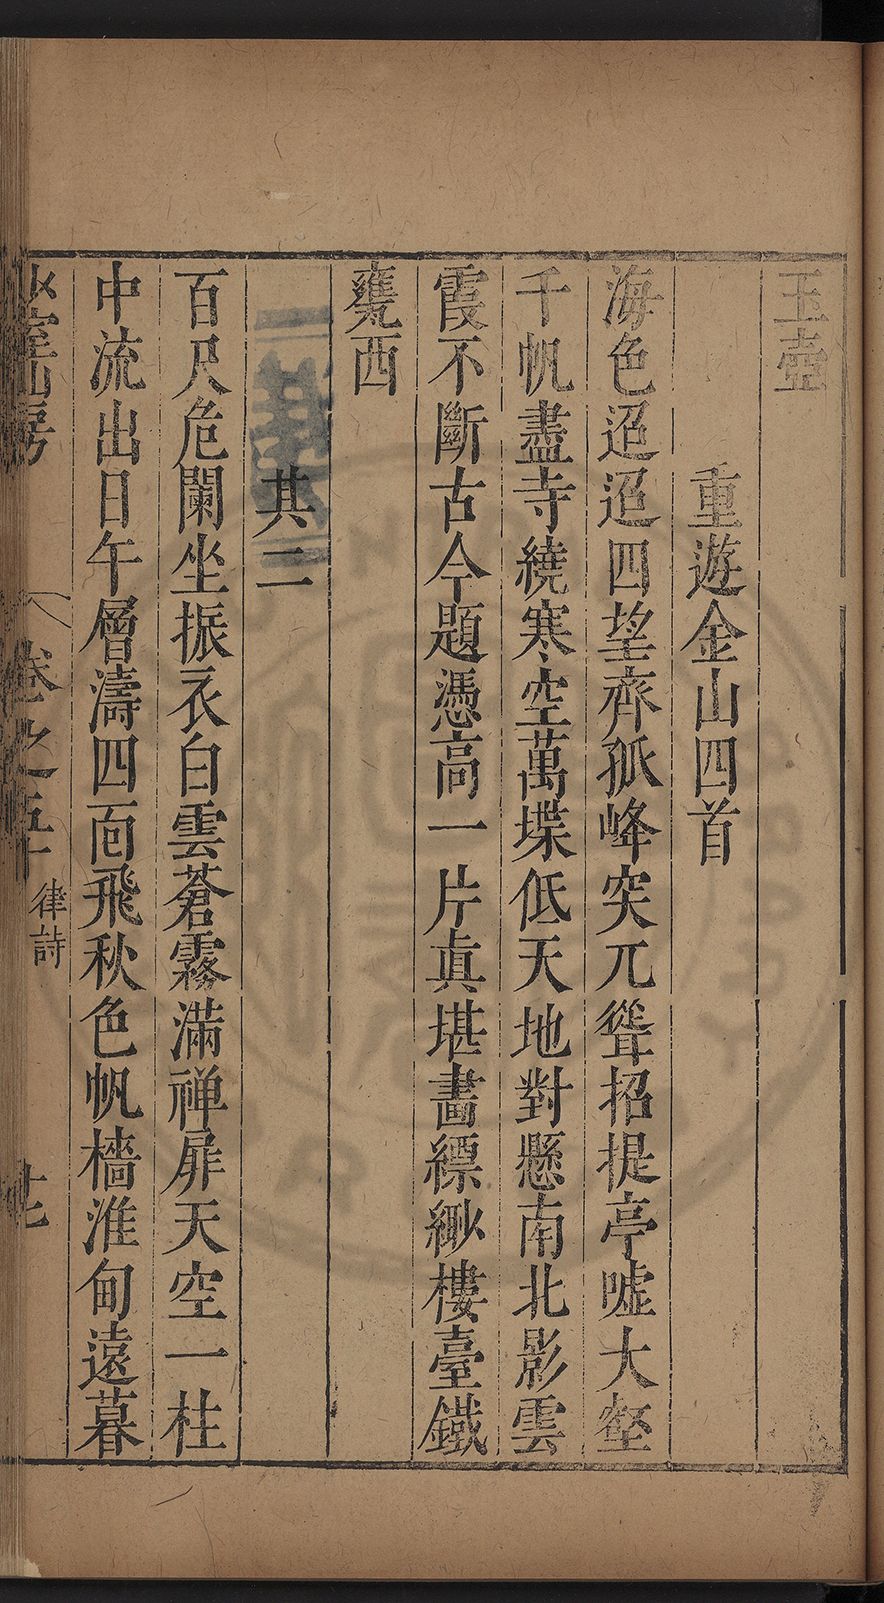 玉壺
重遊金山四首
海色迢迢四望齊孤峰突兀聳招提亭噓大壑
千帆盡寺繞寒空萬堞低天地對懸南北影雲
霞不斷古今題憑高一片眞堪畵縹緲樓臺鐵
甕西
其二
百尺危闌坐振衣白雲蒼霧滿禅扉天空一柱
中流出日午層濤四面飛秋色帆檣淮甸遠暮
山房
卷之五十 律詩